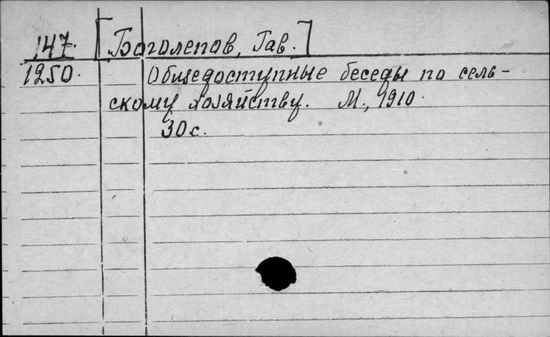 147. [Боголепов, Гав.]
1250. Общедоступные беседы по сель-
скому хозяйству. М., 1910.
30с.